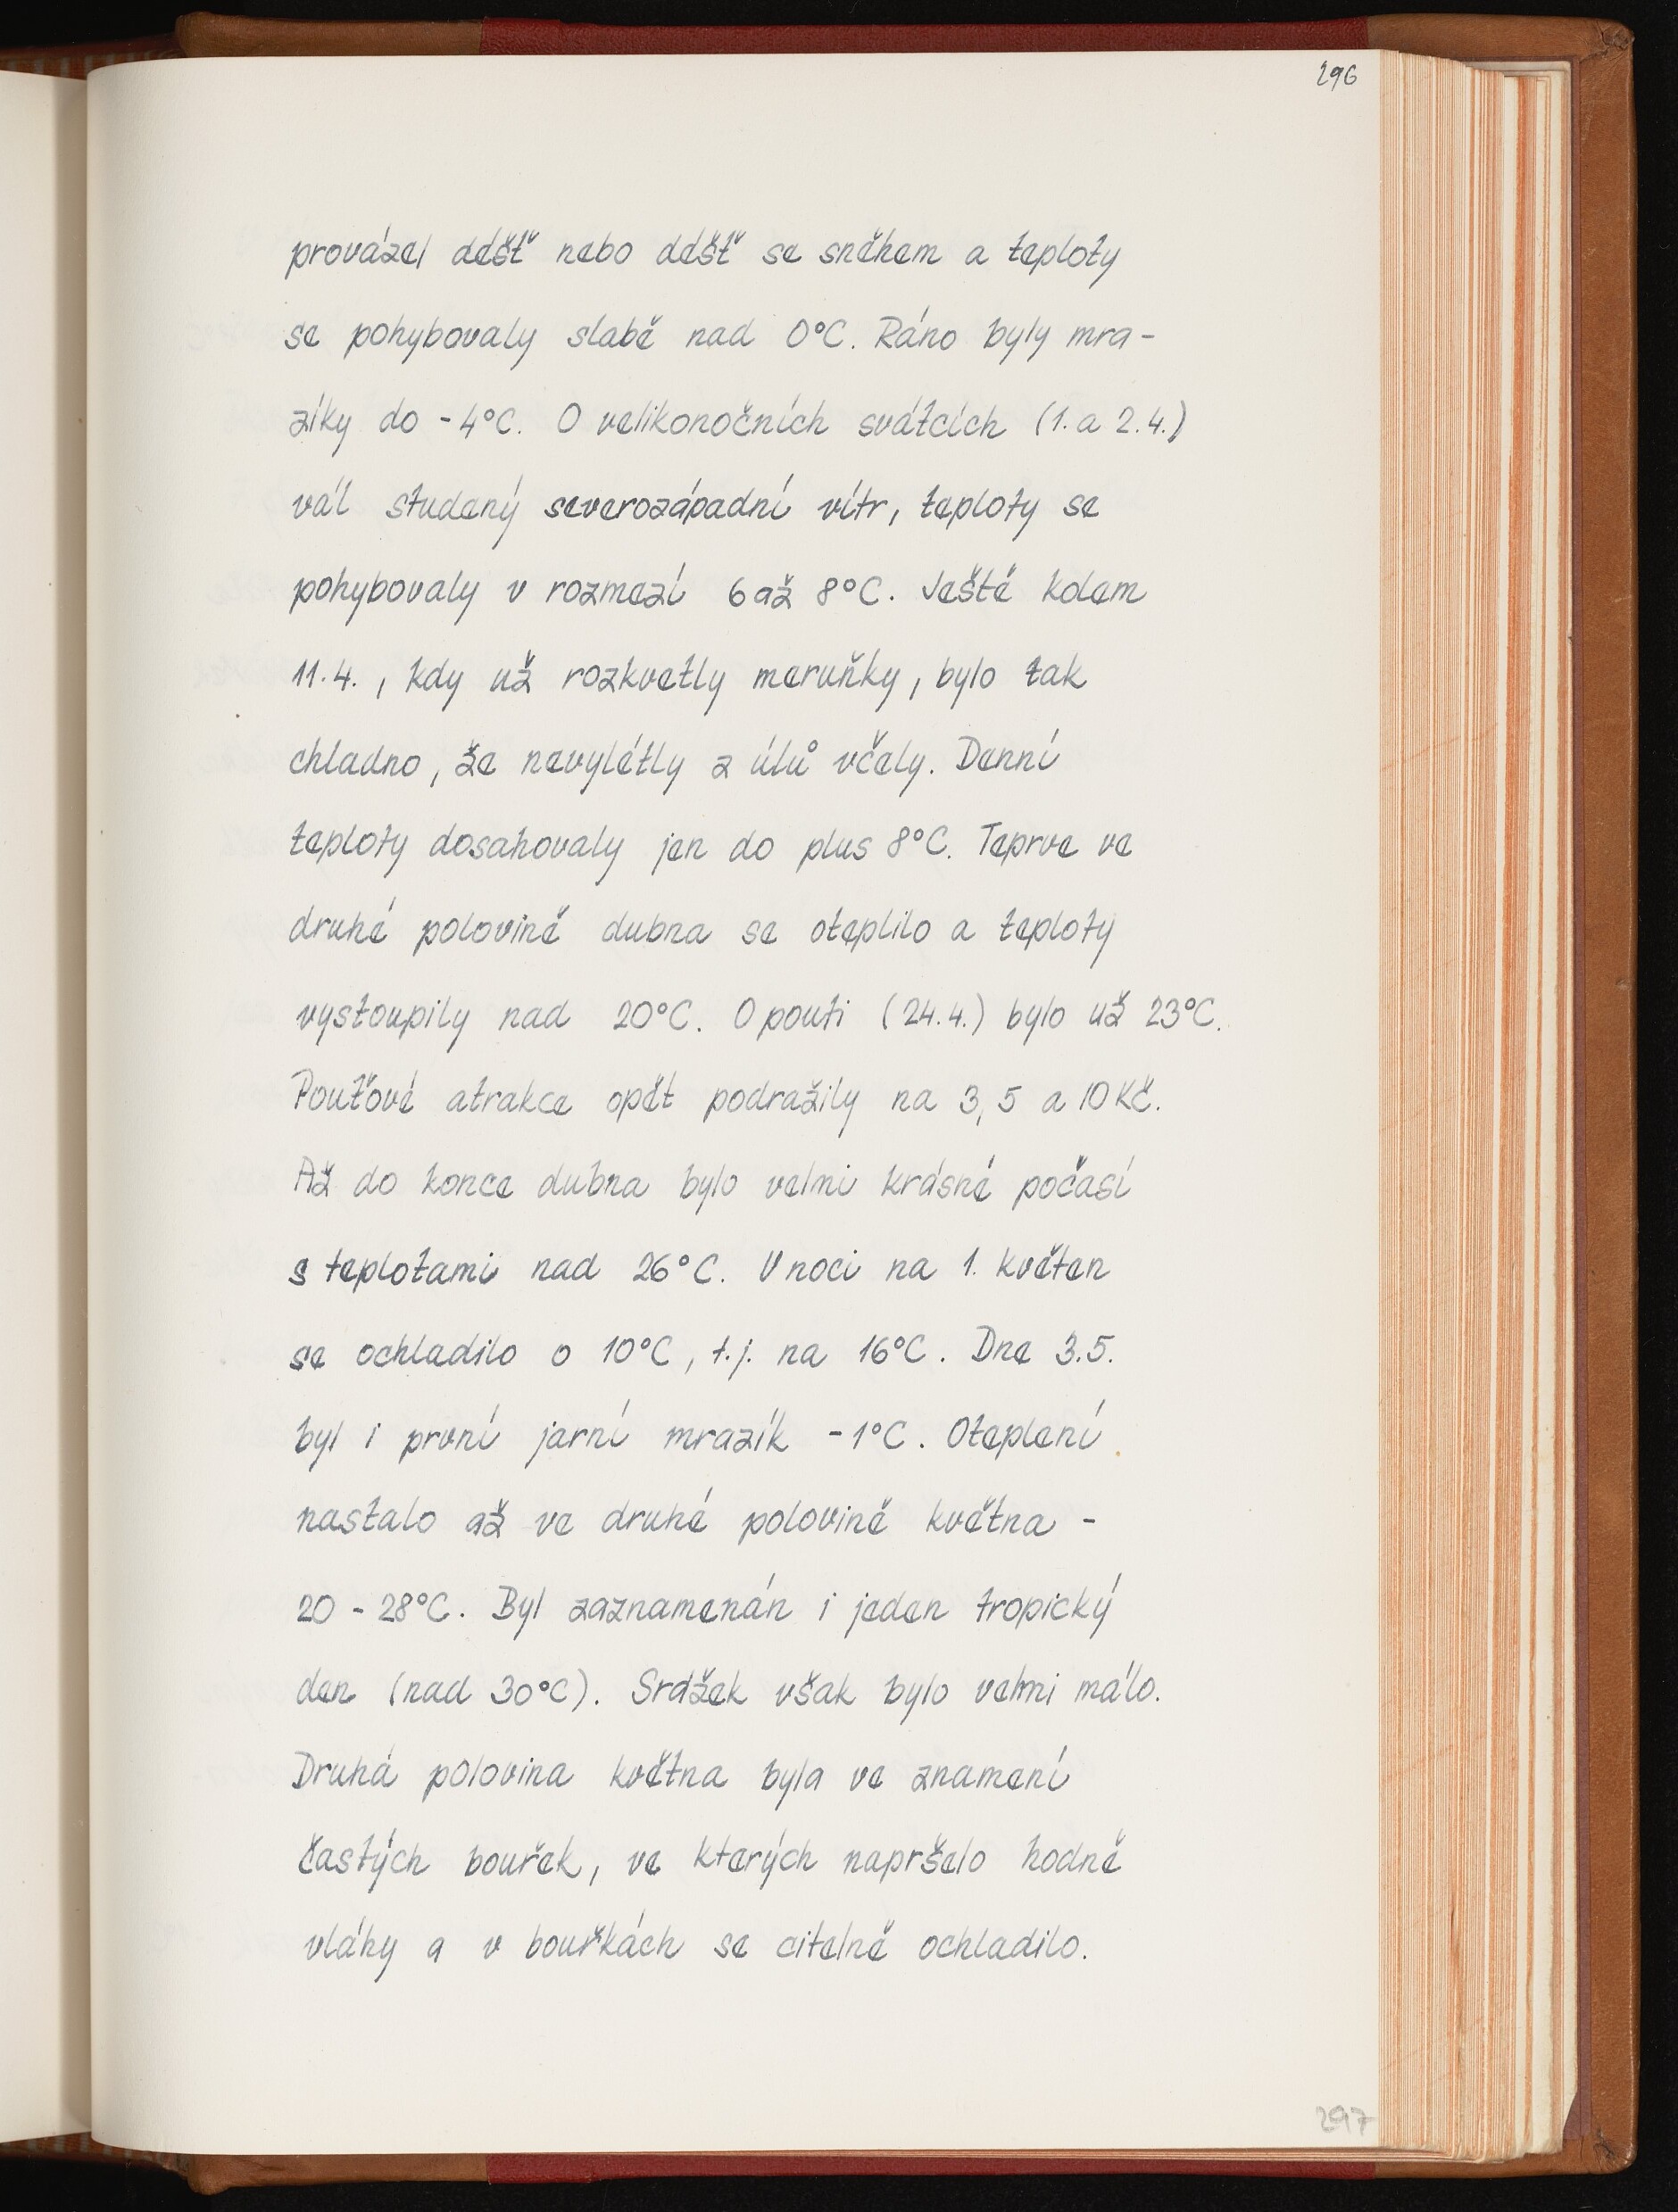 296
provázel déšť nebo déšť se sněhem a teploty
se pohybovaly slabě nad 0°C. Ráno byly mra-
zíky do -4°C. O velikonočních svátcích (1. a 2.4.)
vál studený severozápadní vítr, teploty se
pohybovaly v rozmezí 6 až 8°C. Ještě kolem
11.4., kdy už rozkvetly meruňky, bylo tak
chladno, že nevylétly z úlů včely. Denní
teploty dosahovaly jen do plus 8°C. Teprve ve
druhé polovině dubna se oteplilo a teploty
vystoupily nad 20°C. O pouti (24.4.) bylo už 23°C.
Pouťové atrakce opět podražily na 3, 5 a 10 Kč.
Až do konce dubna bylo velmi krásné počasí
s teplotami nad 26°C. V noci na 1. květen
se ochladilo o 10°C, t.j. na 16°C. Dne 3.5.
byl i první jarní mrazík -1°C. Oteplení
nastalo až ve druhé polovině května -
20 - 28°C. Byl zaznamenán i jeden tropický
den (nad 30°C). Srážek však bylo velmi málo.
Druhá polovina května byla ve znamení
častých bouřek, ve kterých napršelo hodně
vláhy a v bouřkách se citelně ochladilo.
297